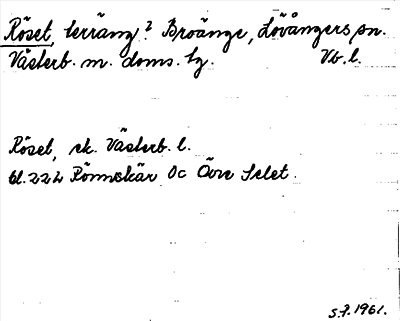 Röset, terräng? Broänge, Lövångers sn.
Västerb. m. doms. Vb. l.
Röset, ek. Västerb. l.
bl. 222 Rönnskär Oc Övre Selet.
S.F. 1961.